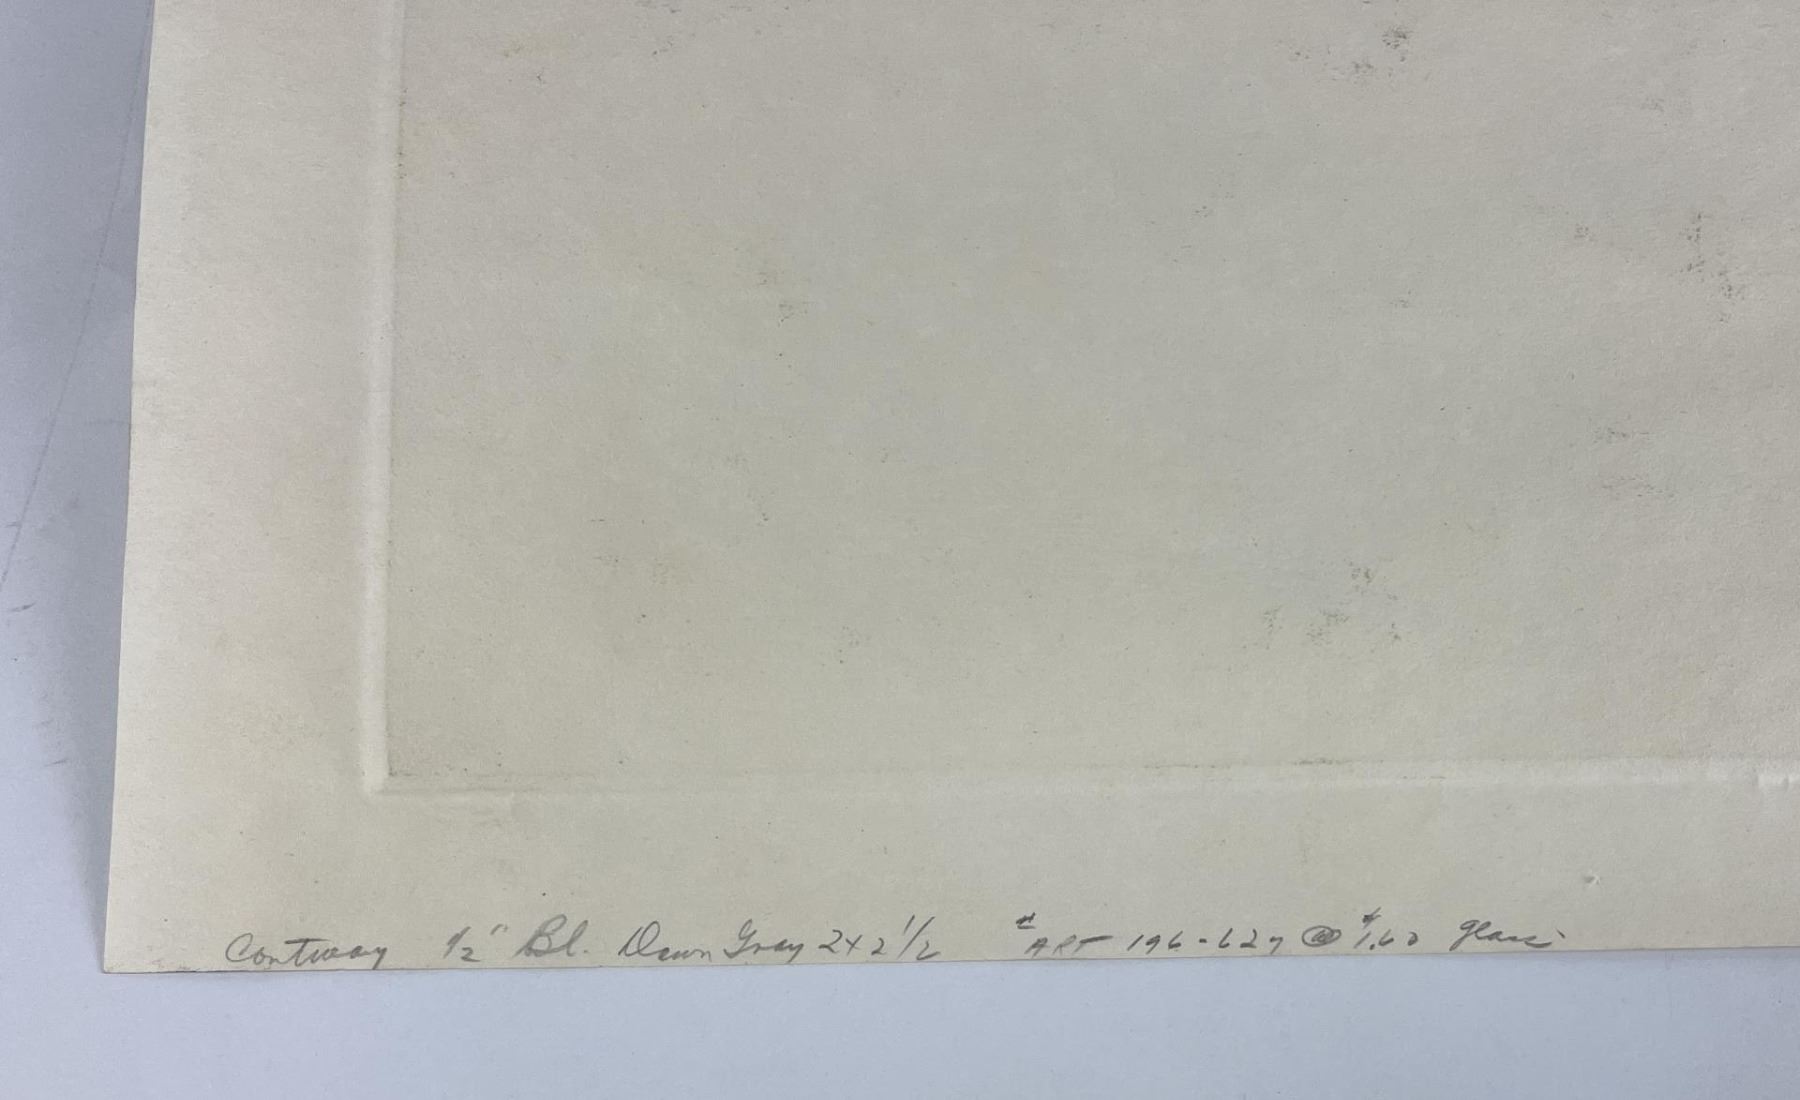 Contway 1/2" Bl. Dawn Gray 2x2 1/2 #ART 196-627 @ $1.60 glass